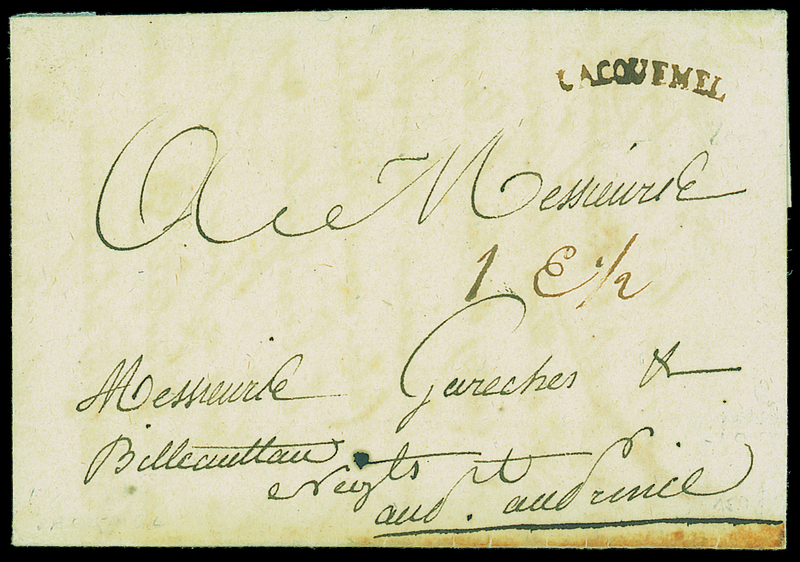 JACQUEMEL
A Messieurs
1 E 1/2
Messieurs Gareches &
Billeautteau
Negts
aud. P. au Prince